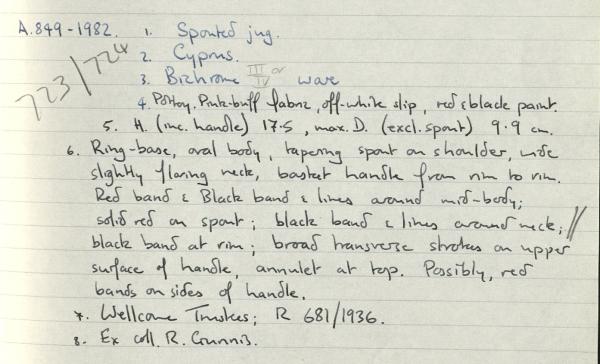 A.849-1982. 1. Spouted jug.
723/724
2. Cyprus.
3. Bichrome III or IV ware
4. Pottery, Pink-buff fabric, off-white slip, red & black paint.
5. H. (inc. handle) 17.5, max. D. (excl. spout) 9.9 cm.
6. Ring-base, oval body, tapering spout on shoulder, wide
slightly flaring neck, basket handle from rim to rim.
Red band & Black band & lines around mid-body;
solid red on spout; black band & lines around neck; //
black band at rim; broad transverse strokes on upper
surface of handle, annulet at top. Possibly, red
bands on sides of handle.
7. Wellcome Trustees; R 681/1936.
8. Ex coll. R. Gunnis.